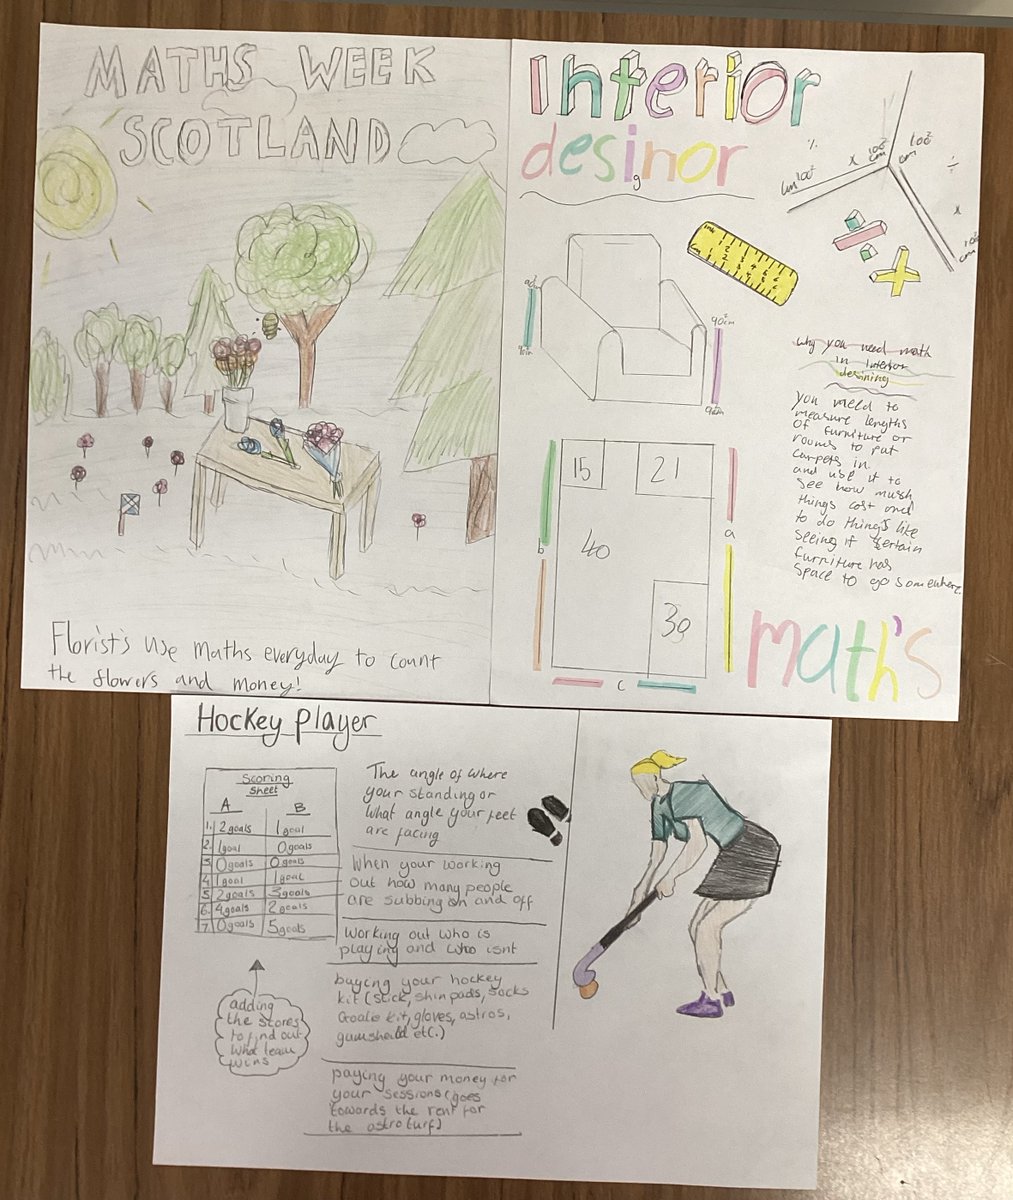 MATHS WEEK
SCOTLAND
Florist's use maths everyday to count
the flowers and money!
Interior
designor
%
x
100²
cm
100²
cm
÷
x
cm
100²
90²
90²in
90²in
15
21
40
39
b
a
c
why you need math
in interior
desining
you need to
measure lengths
of furniture or
rooms to put
carpets in
and use it to
see how mush
things cost and
to do things like
seeing if sertain
furniture has
space to go somewhere.
math's
Hockey player
Scoring
Sheet
A B
1. 2 goals 1 goal
2. 1 goal 0 goals
3. 0 goals 0 goals
4 1 goal 1 goal
5. 2 goals 3 goals
6. 4 goals 2 goals
7. 0 goals 5 goals
adding
the scores
to find out
what team
wins
The angle of where
your standing or
what angle your feet
are facing
When your working
out how many people
are subbing on and off
working out who is
playing and who isnt
buying your hockey
kit (stick, shin pads, socks
Goalie kit, gloves, astros,
gumsheild etc.)
paying your money for
your sessions (goes
towards the rent for
the astro turf)